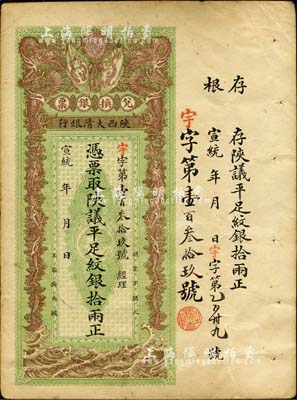 上海陽明拍賣
兌換銀票
陝西大清銀行
宇字第壹百叁拾玖號 經理
憑票取陝議平足紋銀拾兩正
宣統 年 月 日
存根
存陝議平足紋銀拾兩正
宣統 年 月 日宇字第 百卅九號
宇字第壹百叁拾玖號
上海陽明拍賣